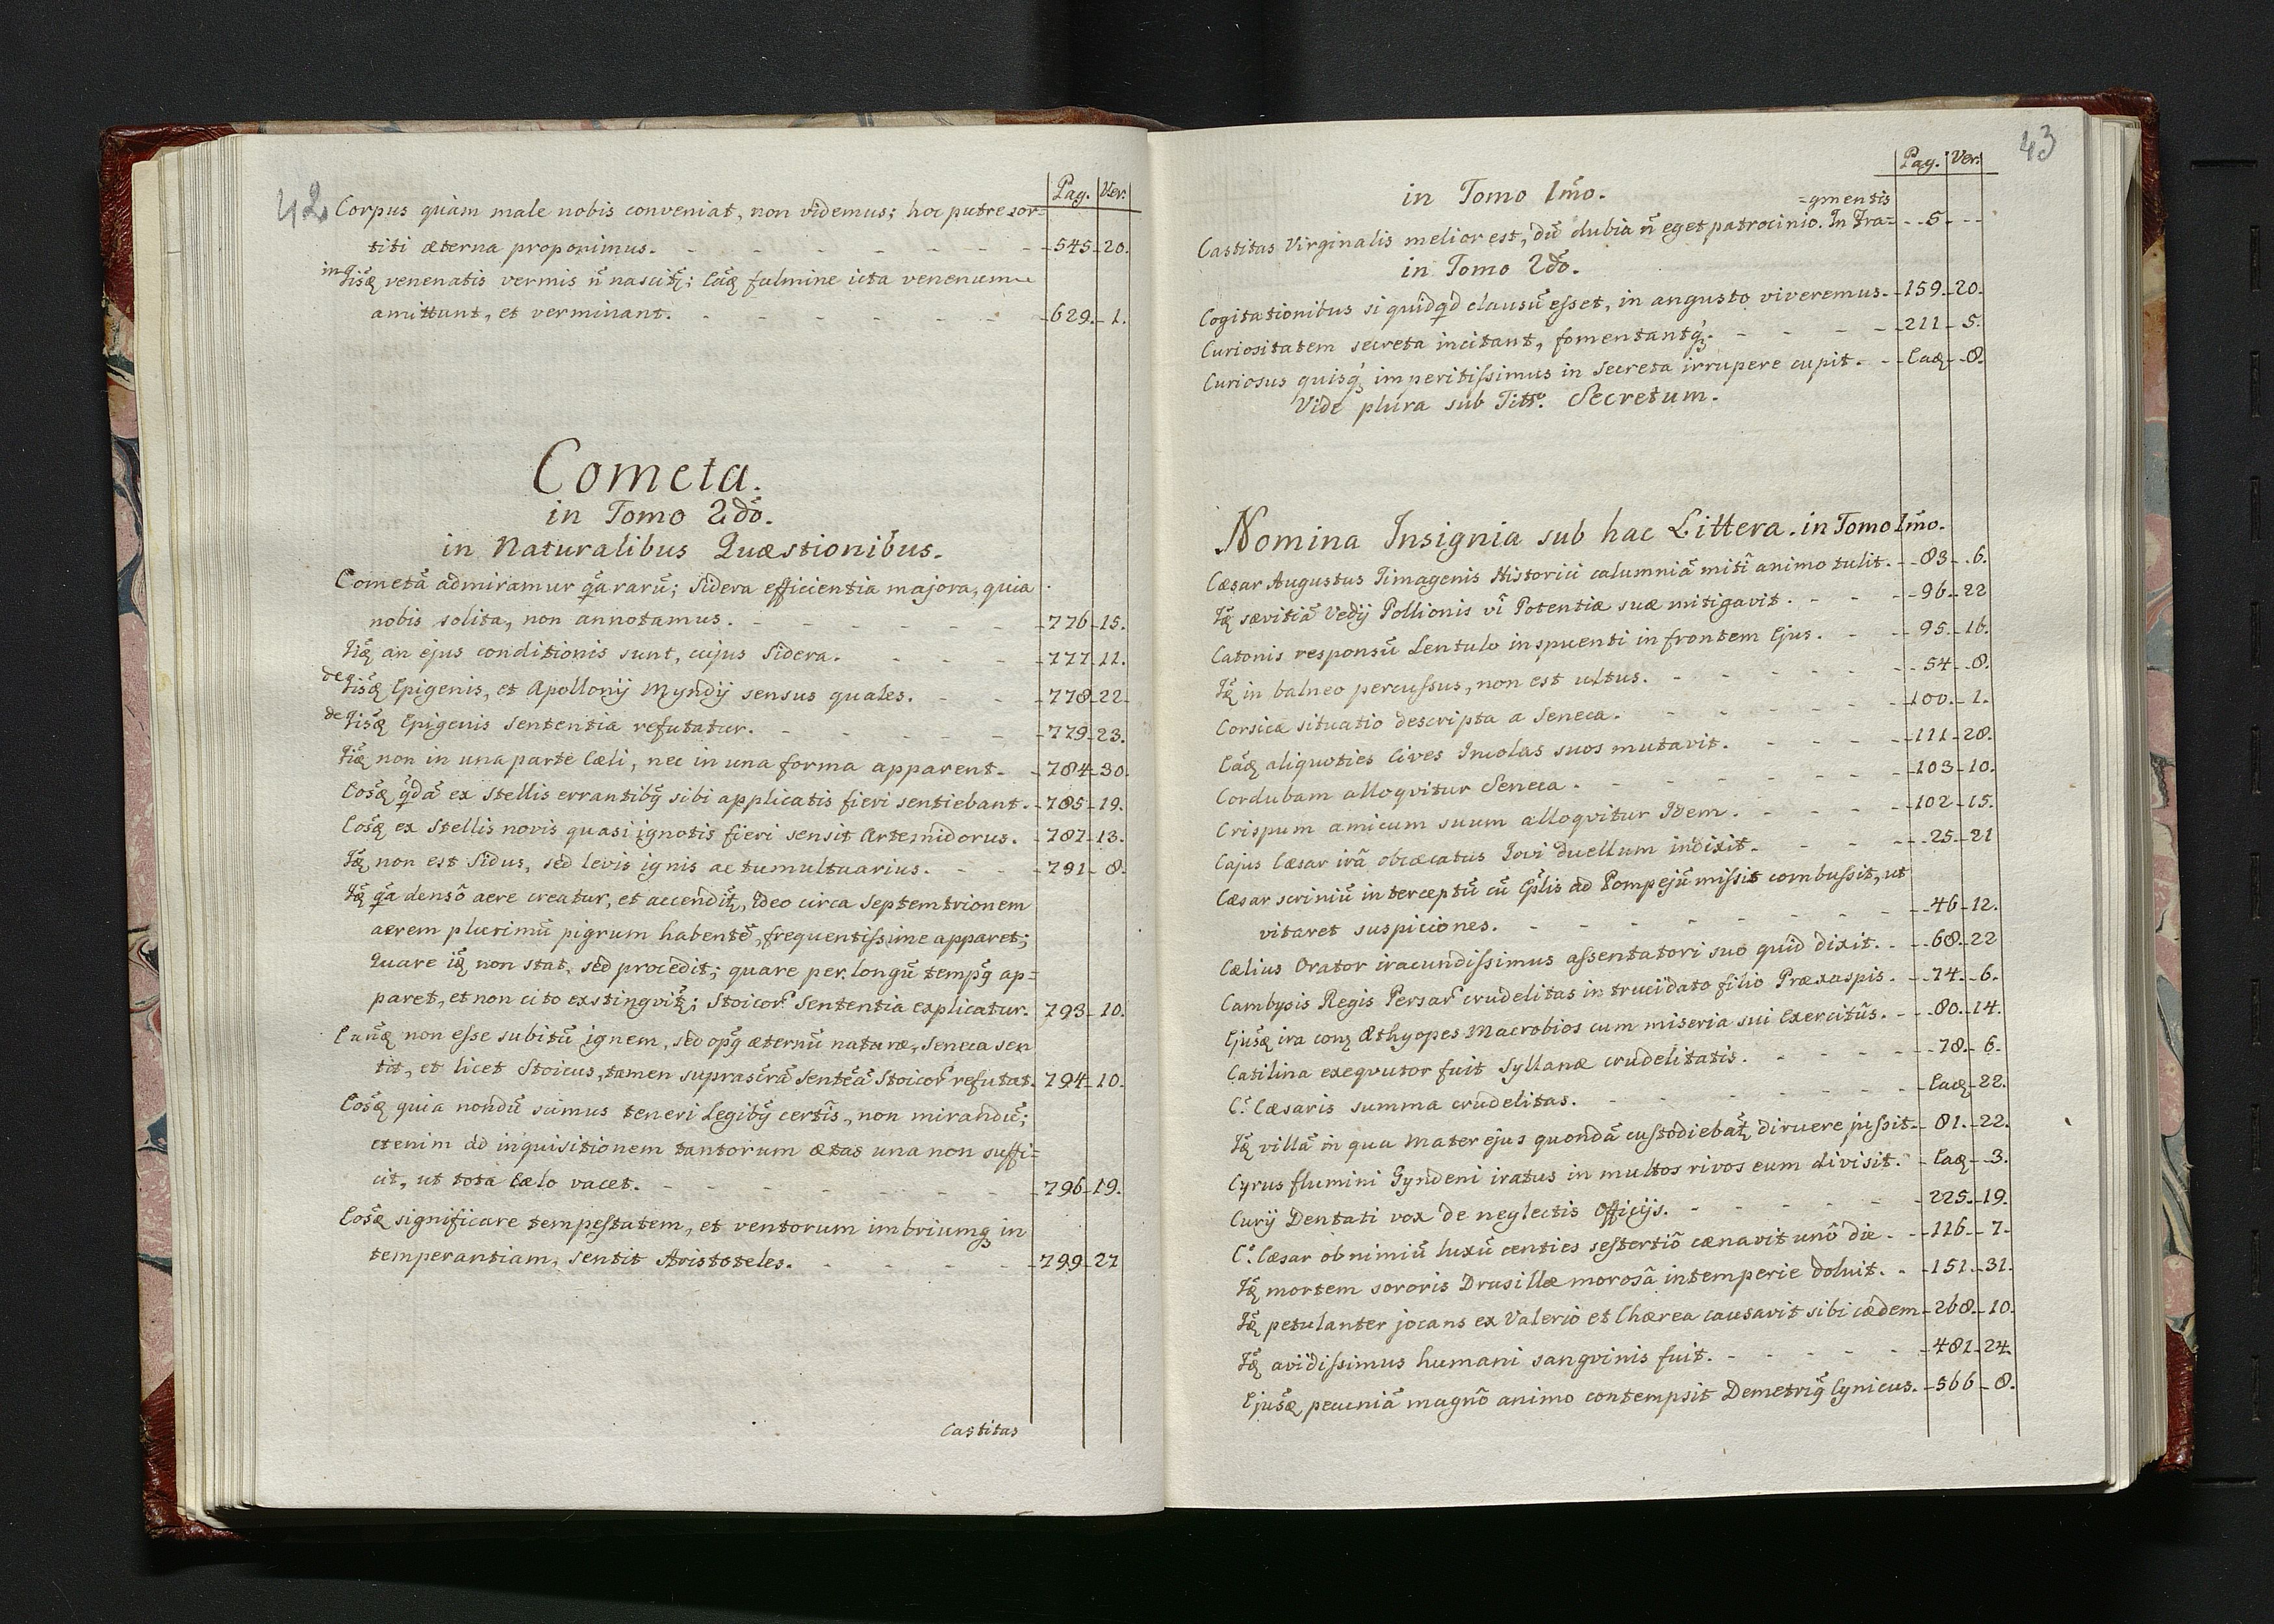 42
Pag. Ver.
Corpus quàm male nobis conveniat, non videmus; hoc putre sor=
titi æterna proponimus. - - - - - - - 545. 20.
in Iisđ venenatis vermis n̄ nascit; Eađ fulmine icta venenum
amittunt, et verminant. - - - - - - 629. 1.
Cometa.
in Tomo 2dõ.
in Naturalibus Quæstionibus.
Cometã admiramur qa rarũ; Sidera efficientia majora, quia
nobis solita, non annotamus. - - - - - 776. 15.
Iiđ an ejus conditionis sunt, cujus Sidera. - - - 777. 11.
de Iisđ Epigenis, et Apollonij Myndij sensus quales. - - 778. 22.
de Iisđ Epigenis Sententia refutatur. - - - - - 779. 23.
Iiđ non in una parte Cæli, nec in una forma apparent. - 784. 30.
Eosđ qdã ex Stellis errantibq sibi applicatis fieri sentiebant. - 785. 19.
Eosđ ex Stellis novis quasi ignotis fieri sensit Artemidorus. - 787. 13.
Iđ non est Sidus, sed levis ignis ac tumultuarius. - - - 791. 8.
Iđ qa densô aere creatur, et accendit, ideo circa Septemtrionem
aerem plurimũ pigrum habentẽ, frequentissime apparet;
Quare iđ non stat, sed procedit; quare per longũ tempq ap=
paret, et non cito exstingvit; Stoicor Sententia explicatur. 793. 10.
Eunđ non esse subitũ ignem, sed opq æternũ naturæ, Seneca sen
tit, et licet Stoicus, tamen suprascrã Sentẽã Stoicor refutat. 794. 10.
Eosđ quia nondũ scimus teneri Legibq certis, non mirandũ;
etenim ad inquisitionem tantorum ætas una non suffi=
cit, ut tota Cælo vacet. - - - - - - - 796. 19.
Eosđ significare tempestatem, et ventorum imbriumq in
temperantiam, sentit Aristoteles. - - - - - 799. 27
Castitas
43
Pag. Ver.
in Tomo 1mõ.
=gmentis
Castitas Virginalis melior est, dũ dubia n̄ eget patrocinio. In Fra= - - 5. - - -
in Tomo 2dõ.
Cogitationibus si quidqd clausũ esset, in angusto viveremus. - 159. 20.
Curiositatem secreta incitant, fomentantq. - - - - 211. 5.
Curiosus quisq imperitissimus in Secreta irrupere cupit. - - Eađ - 8.
Vide plura sub Titto. Secretum.
Nomina Insignia sub hac Littera. in Tomo 1mõ.
Cæsar Augustus Timagenis Historici calumniã miti animo tulit. - - 83. - 6.
Iđ sævitiã Vedij Pollionis vi Potentiæ suæ mitigavit. - - - 96. 22
Catonis responsũ Lentulo inspuenti in frontem Ejus. - - - 95. 16.
Iđ in balneo percussus, non est ultus. - - - - - - 54. 8.
Corsicæ situatio descripta a Seneca. - - - - - 100. 1.
Eađ aliquoties Cives Incolas suos mutavit. - - - - 111. 28.
Cordubam alloqvitur Seneca. - - - - - - 103. 10.
Crispum amicum suum alloqvitur Idem. - - - - 102. 15.
Cajus Cæsar irâ obcæcatus Jovi duellum indixit. - - - 25. 21
Cæsar scriniũ interceptũ cũ Eplis ad Pompejũ missit combussit, ut
vitaret suspiciones. - - - - - - - - 46. 12.
Cælius Orator iracundissimus assentatori suo quid dixit. - - 68. 22
Cambysis Regis Persar crudelitas in trucidato filio Præxaspis. - - 74. - 6.
Ejusđ ira con Æthyopes Macrobios cum miseria sui Exercitũs. - - 80. 14.
Catilina exeqvutor fuit Syllanæ crudelitatis. - - - - 78. 6.
C: Cæsaris summa crudelitas. - - - - - - - Eađ 22.
Iđ villã in qua Mater ejus quondã custodiebat diruere jussit. - 81. 22.
Cyrus flumini Gyndeni iratus in multos rivos eum divisit. - Eađ - 3.
Curij Dentati vox de neglectis Officijs. - - - - - - 225. 19.
C: Cæsar ob nimiũ luxũ centies sestertiô cænavit unô die. - - 116. - 7.
Iđ mortem sororis Drusillæ morosâ intemperie doluit. - - 151. 31.
Iđ petulanter jocans ex Valerio et Chærea causavit sibi cædem - 268. 10.
Iđ avidissimus humani sangvinis fuit. - - - - - - 481. 24.
Ejusđ pecuniã magnô animo contempsit Demetriq Cynicus. - 566. 8.